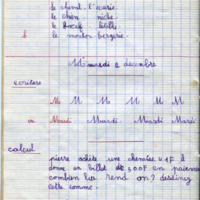 le cheval. l'écurie
le chien. niche
le boeuf. étable
b le mouton bergerie.
Mardi 2 décembre
écriture
M M M M M M
m Mardi Mardi Mardi Mardi
calcul
pierre achète une chemise 41F il
donne un billet de 500F en paiement
combien lui rend on? dessinez
cette somme.